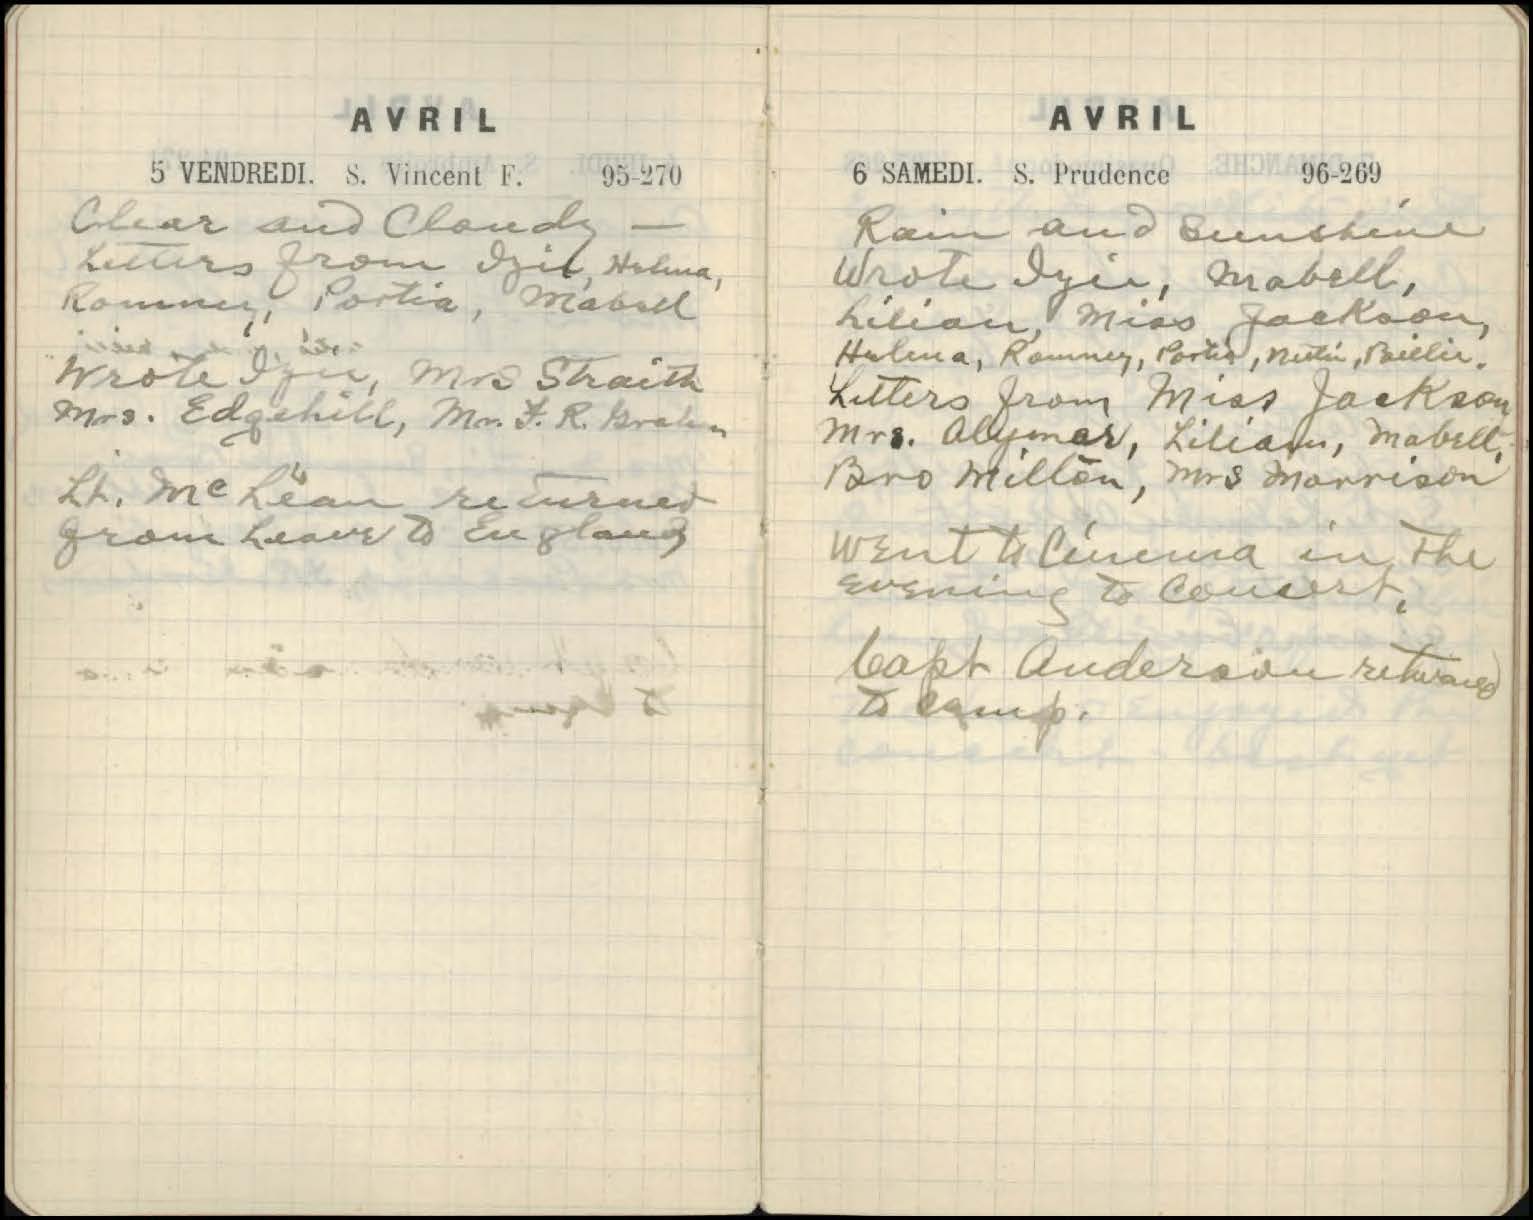 AVRIL
5 VENDREDI. S. Vincent F. 95-270
Clear and Cloudy —
Letters from Izie, Helena,
Romney, Portia, Mabell
Wrote Izie, Mrs Straith
Mrs. Edgehill, Mr. F. R.
Lt. McLean returned
from Leave to England
AVRIL
6 SAMEDI. S. Prudence 96-269
Rain and Sunshine
Wrote Izie, Mabell,
Lilian, Miss Jackson,
Helena, Romney, Portia, Nettie, Billie.
Letters from Miss Jackson
Mrs. Alymer, Lilian, Mabell,
Bro Milton, Mrs Morrison
Went to Cinema in The
Evening to Concert.
Capt Anderson returned
to camp.